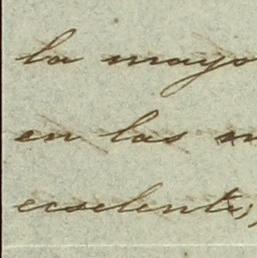 la mayo
en las m
ecselente,